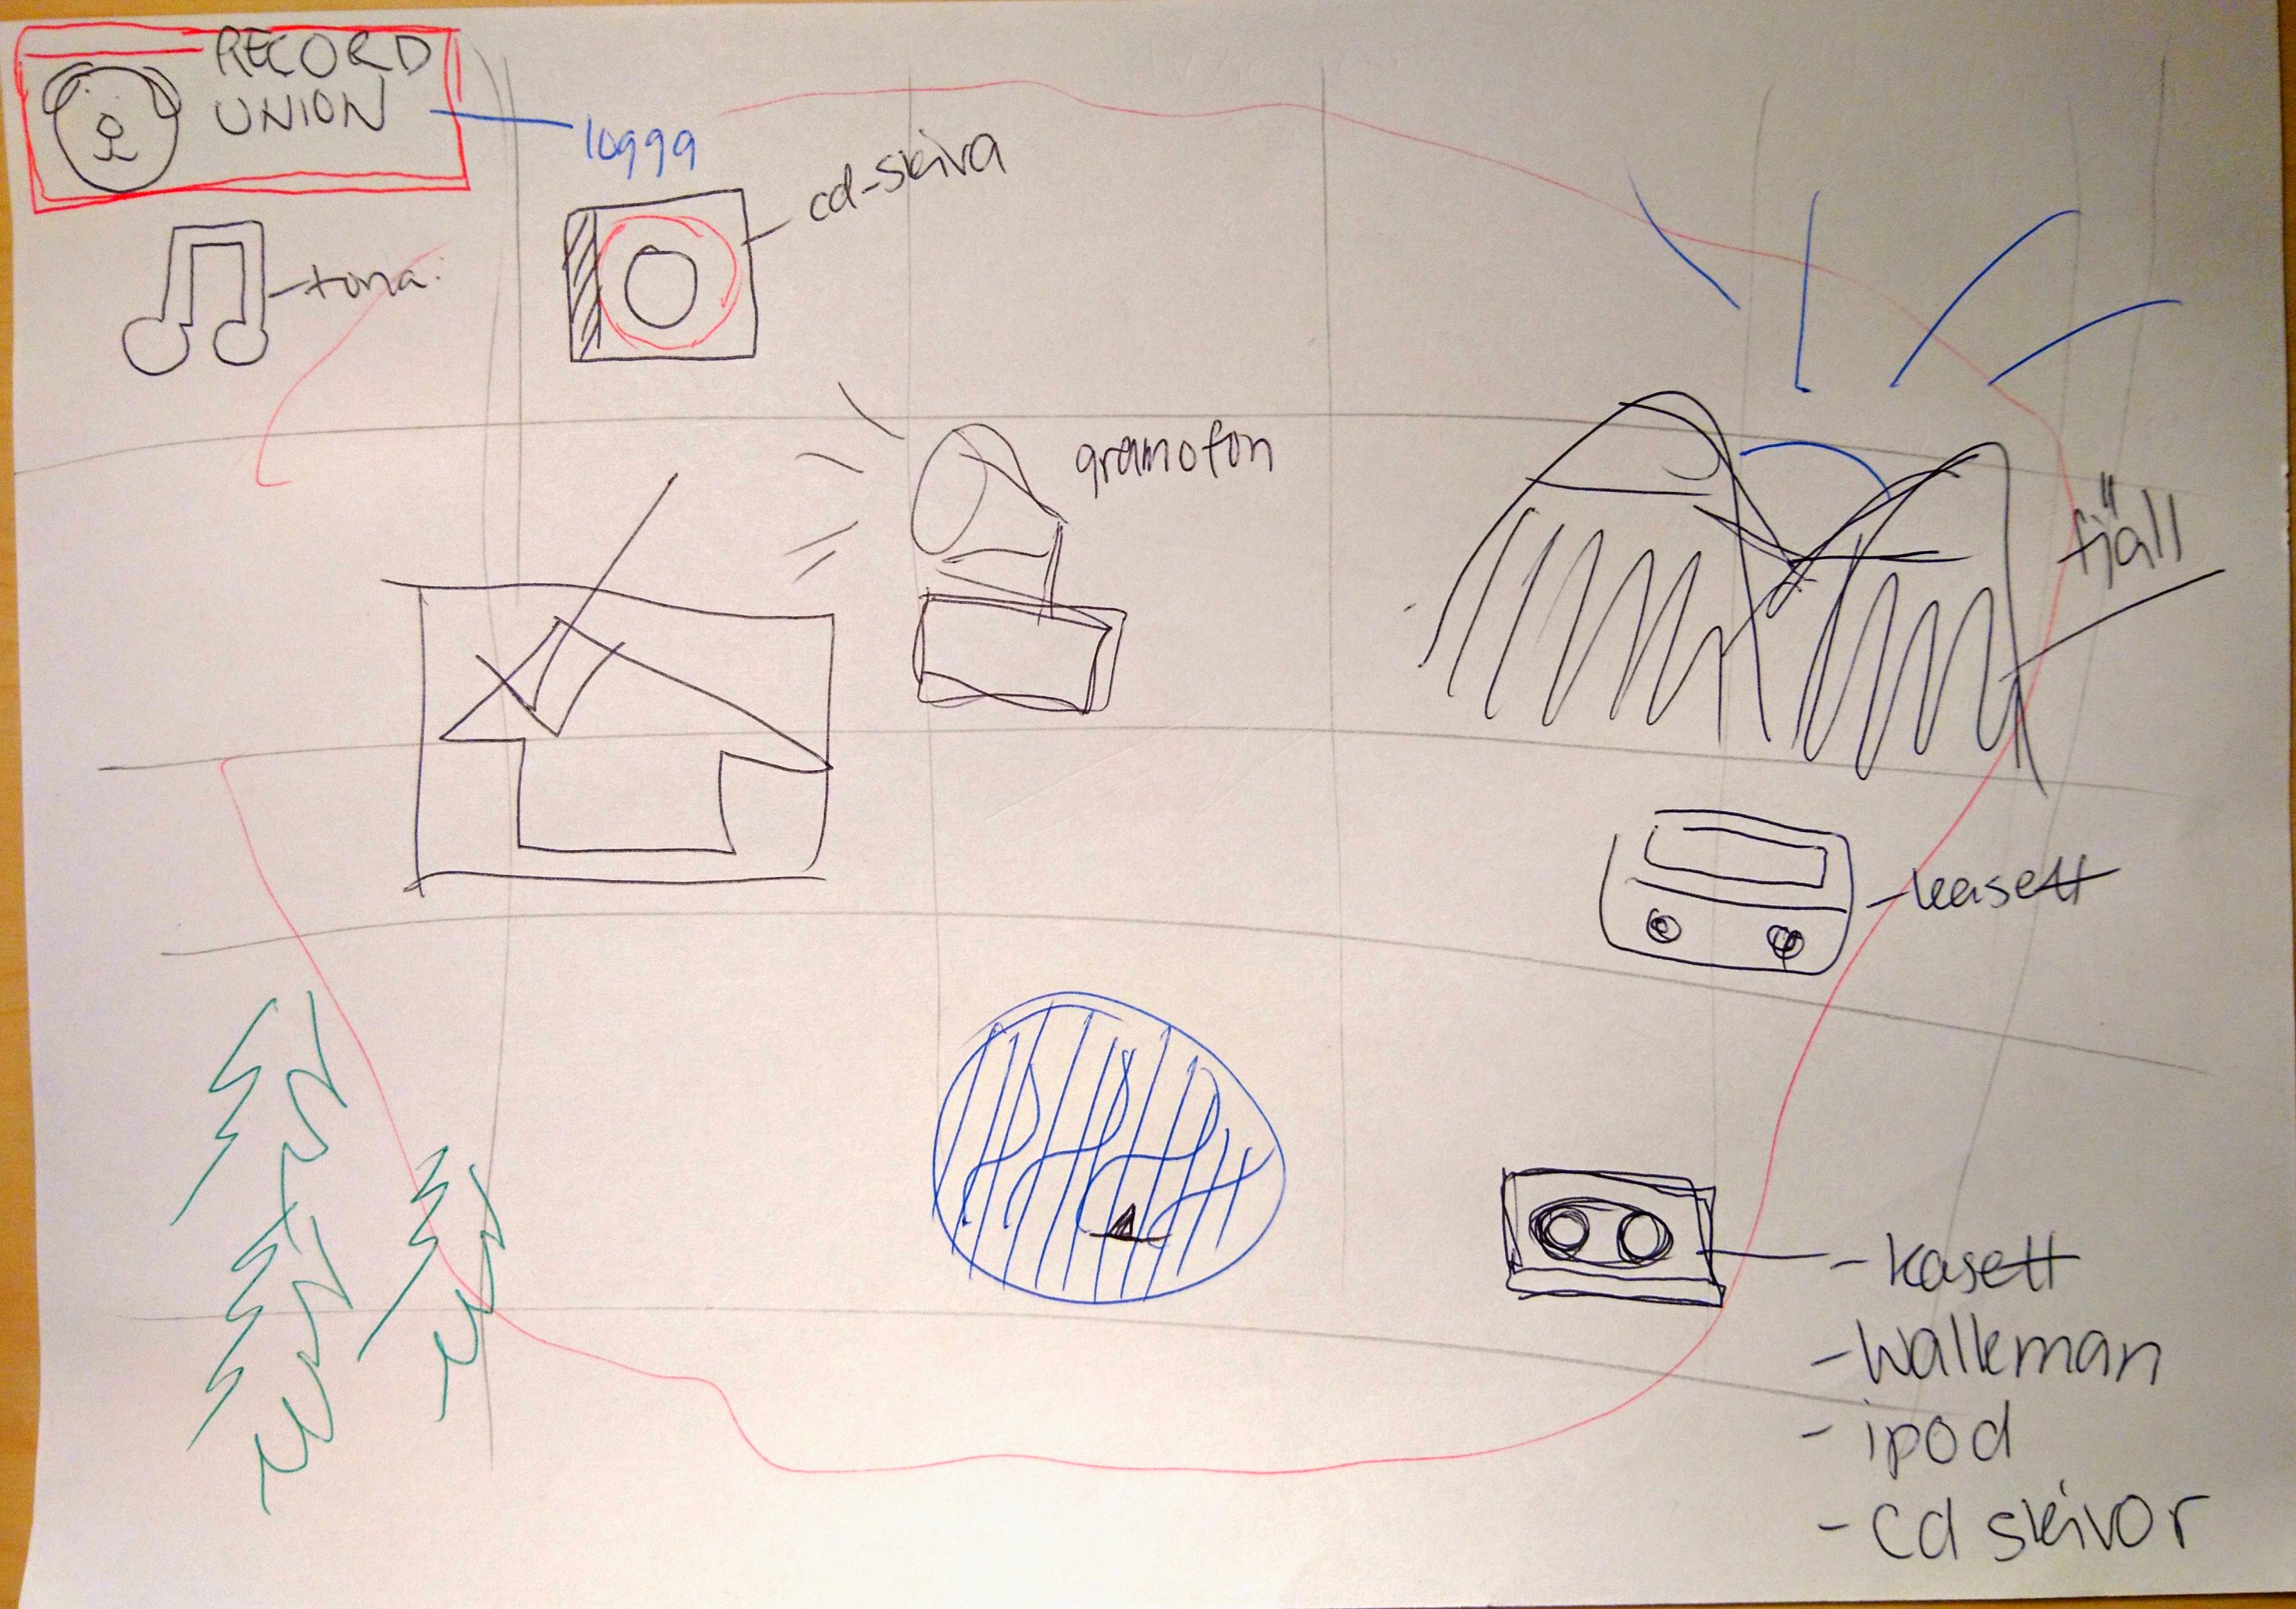 RECORD
UNION
logga
cd-skiva
gramofon
fjäll
- kasett
- kasett
- Walkman
- ipod
- cd skivor